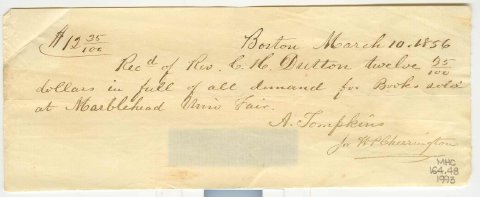 $12 35/100
Boston March 10. 1856
Recd of Rev. C. H. Dutton twelve 35/100
dollars in full of all demand for Books sold
at Marblehead Univ Fair.
A. Tompkins
MHC
164.48
1993